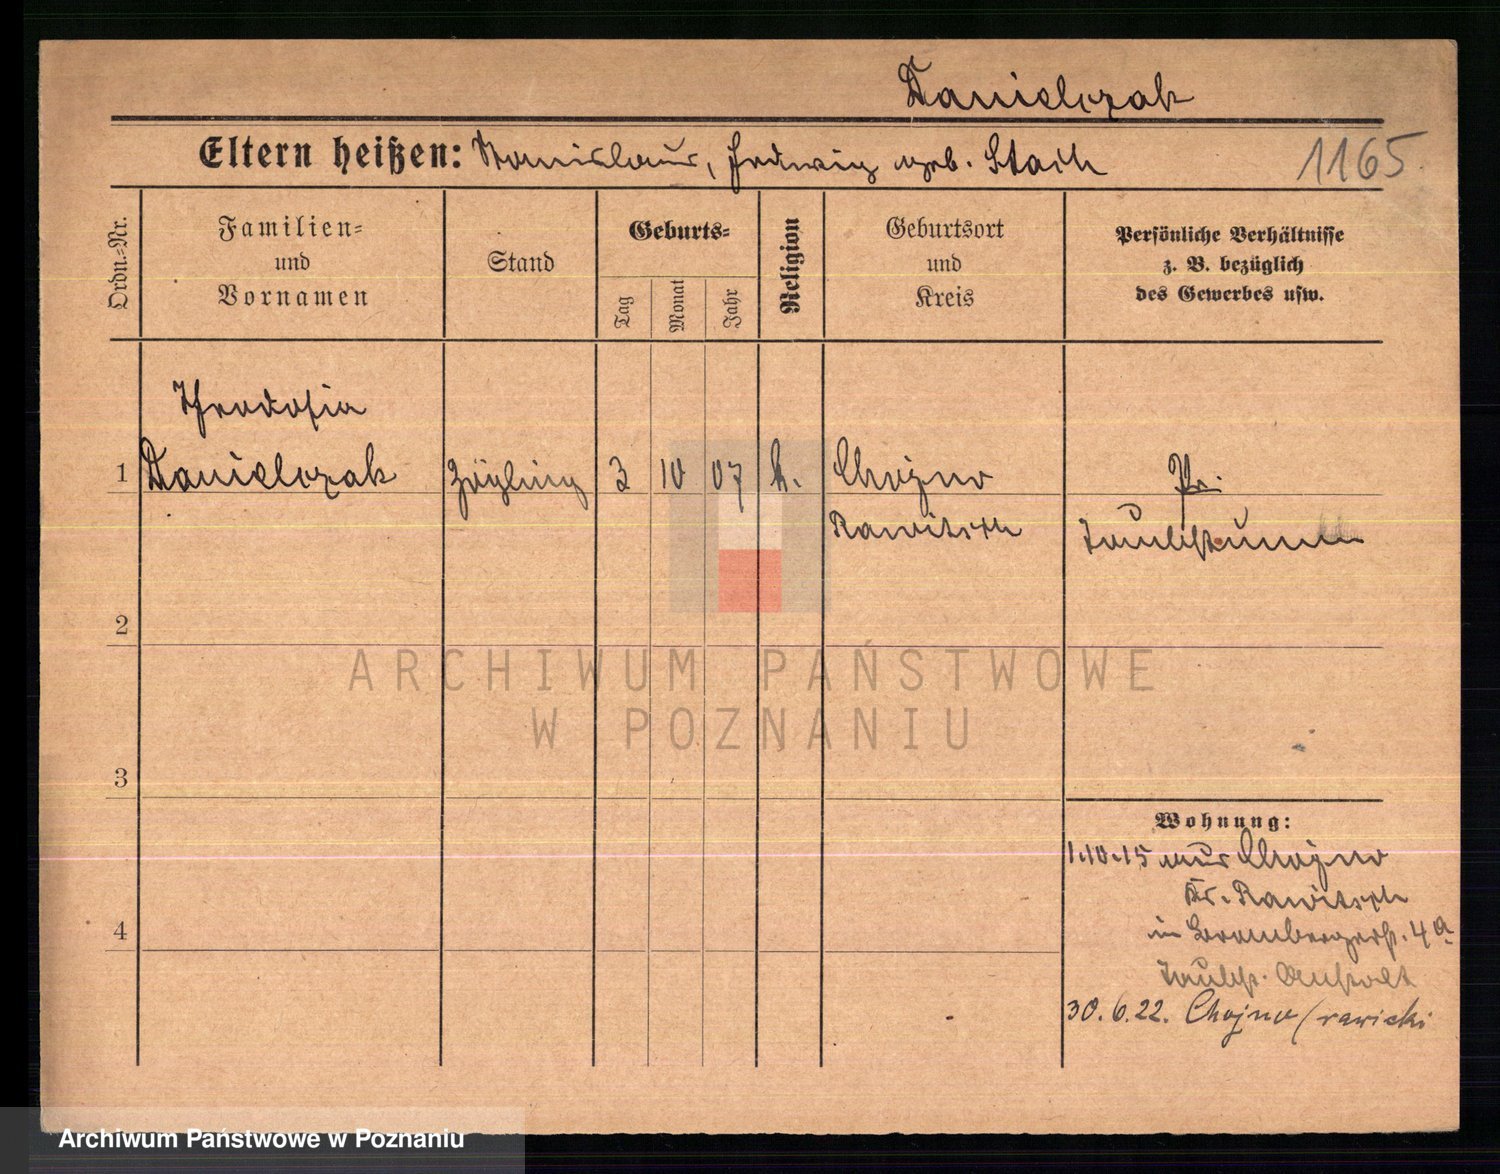 Danielczak
Eltern heißen: Stanislaus, Hedwig geb. Stach
1165.
Ordn.=Nr.
Familien=
und
Vornamen
Stand
Geburts=
Tag
Monat
Jahr
Religion
Geburtsort
und
Kreis
Persönliche Verhältnisse
z. B. bezüglich
des Gewerbes usw.
Theodosia
1 Danielczak Zögling 3 10 07 k. Chojno Pr.
Rawitsch taubstumm
2
3
4
ARCHIWUM PAŃSTWOWE
W POZNANIU
Wohnung:
1.10.15 aus Chojno
Kr. Rawitsch
in Brombergerst. 4a
Taubst. Anstalt
30.6.22. Chojno (rawicki
Archiwum Państwowe w Poznaniu